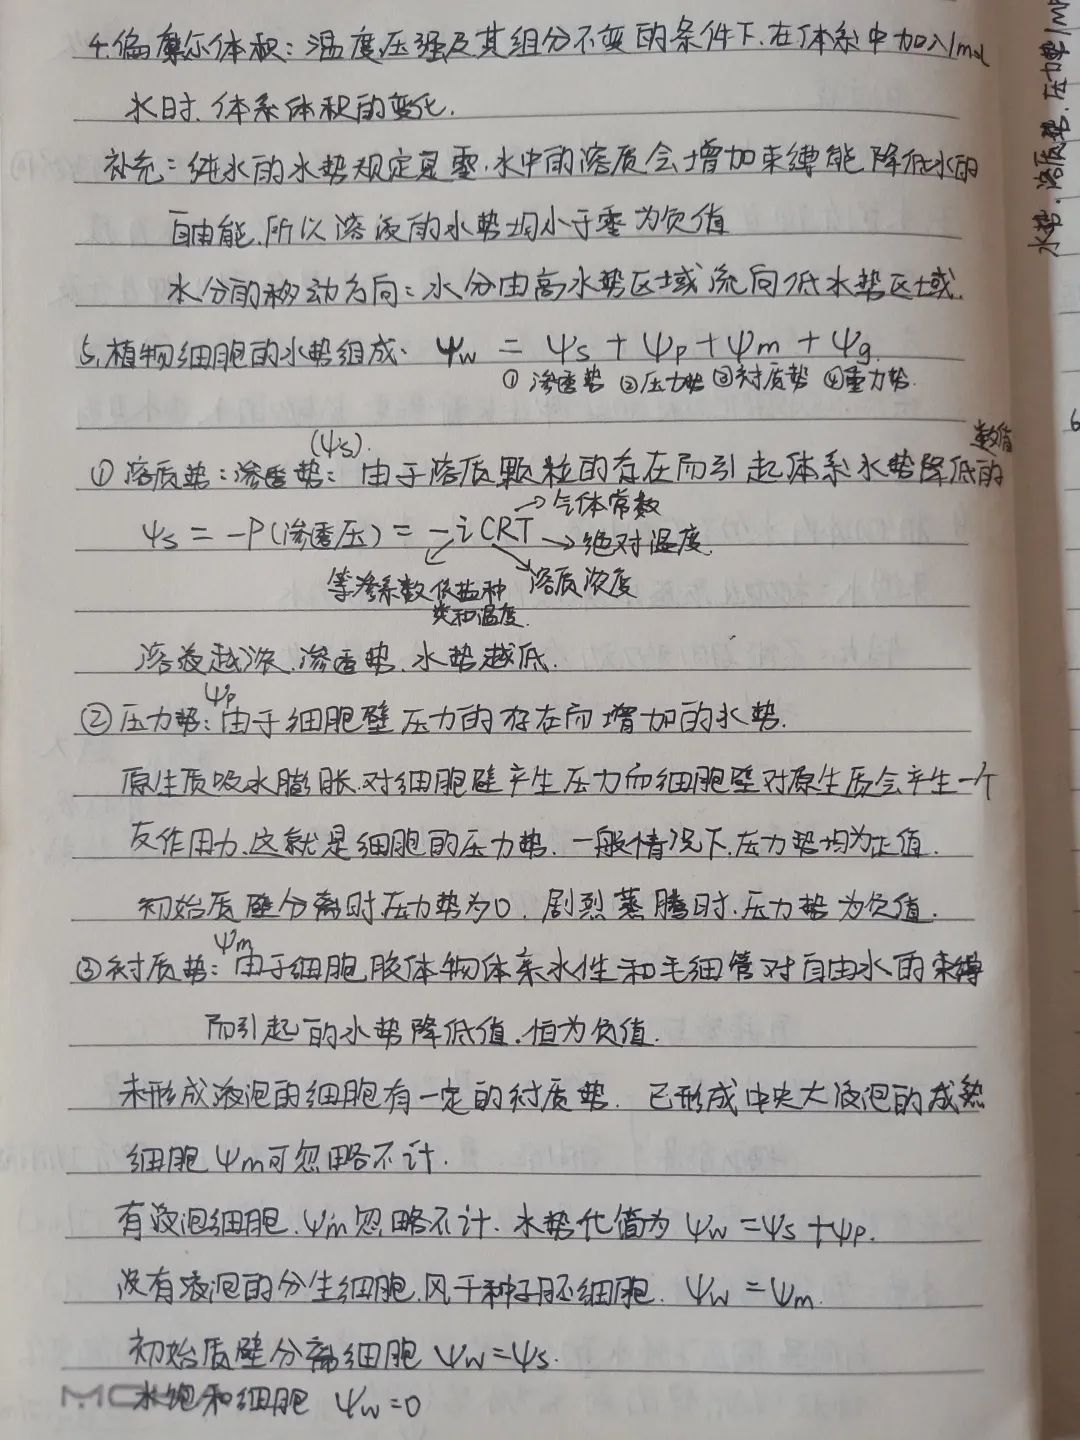 4.偏摩尔体积：温度压强及其组分不变的条件下.在体系中加入1mol
水时.体系体积的变化.
补充：纯水的水势规定为零.水中的溶质会增加束缚能降低水的
自由能.所以溶液的水势均小于零为负值
水分的移动方向：水分由高水势区域流向低水势区域.
5.植物细胞的水势组成. Ψw = Ψs + Ψp + Ψm + Ψg.
①渗透势 ②压力势 ③衬质势 ④重力势.
(Ψs). 数值
①溶质势：渗透势：由于溶质颗粒的存在而引起体系水势降低的
→气体常数
Ψs = -P(渗透压) = -iCRT →绝对温度.
等渗系数 依盐种 溶质浓度
类和温度.
溶液越浓.渗透势.水势越低.
Ψp
②压力势：由于细胞壁压力的存在而增加的水势.
原生质吸水膨胀.对细胞壁产生压力而细胞壁对原生质会产生一个
反作用力.这就是细胞的压力势.一般情况下.压力势均为正值.
初始质壁分离时压力势为0.剧烈蒸腾时.压力势为负值.
Ψm
③衬质势：由于细胞胶体物体亲水性和毛细管对自由水的束缚
而引起的水势降低值.恒为负值.
未形成液泡的细胞有一定的衬质势.已形成中央大液泡的成熟
细胞Ψm可忽略不计.
有液泡细胞.Ψm忽略不计.水势化简为 Ψw=Ψs+Ψp.
没有液泡的分生细胞.风干种子胚细胞. Ψw=Ψm.
初始质壁分离细胞 Ψw=Ψs.
水饱和细胞 Ψw=0
水势.溶质势.压力单